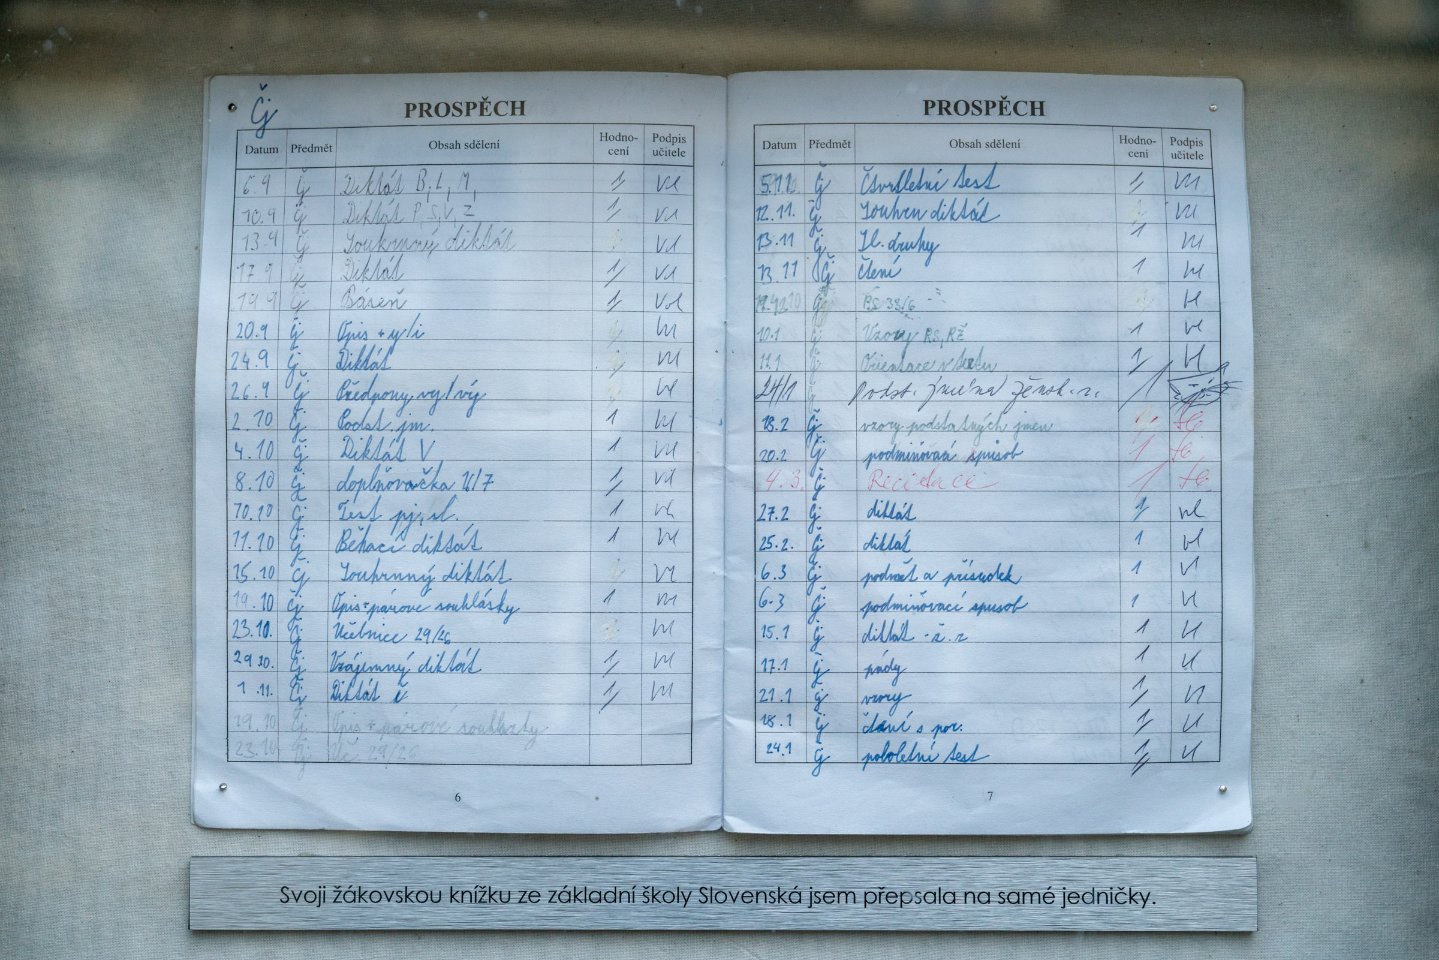 Čj
PROSPĚCH
Datum Předmět Obsah sdělení Hodno- cení Podpis učitele
6.9 Čj Diktát B, L, M,
10.9 Čj Diktát P, S, V, Z
13.9 Čj diktát
17.9 Čj Diktát
19.9 Čj Báseň
20.9 Čj Opis + y/i
24.9 Čj Diktát
26.9 Čj Předpony vy/vý
2.10 Čj Podst. jm. 1
4.10 Čj Diktát V 1
8.10 Čj doplňovačka
10.10 Čj Test 1
11.10 Čj Běhací diktát 1
15.10 Čj Souhrnný diktát
19.10 Čj Opis+párove souhlásky 1
23.10. Čj Učebnice 29/26
29.10. Čj Vzájemný diktát 1
1.11. Čj Diktát ě 1
19.10 Čj Opis + párové souhlásky
23.10 Čj Uč 29/26
6
PROSPĚCH
Datum Předmět Obsah sdělení Hodno- cení Podpis učitele
5.11 Čj Čtvrtletní test 1
12.11. Čj Souhrn diktát
13.11 Čj Sl. druhy 1
13.11 Čj čtení 1
Čj 33/6
10.1 Čj Vzory 1
11.1 Čj Orientace v textu 1
24/1 Čj Podst. jména žensk. r. 1
18.2 Čj vzory podstatných jmen
20.2 Čj podmiňovací spusob 1
4.3. Čj Recitace 1
27.2 Čj diktát 1
25.2. Čj diktat 1
6.3 Čj podmět a přísudek 1
6.3 Čj podmiňovací spusob 1
15.1 Čj diktát 1
17.1 Čj pády 1
21.1 Čj vzory 1
18.1 Čj čtení s por. 1
24.1 Čj pololetní test 1
7
Svoji žákovskou knížku ze základní školy Slovenská jsem přepsala na samé jedničky.